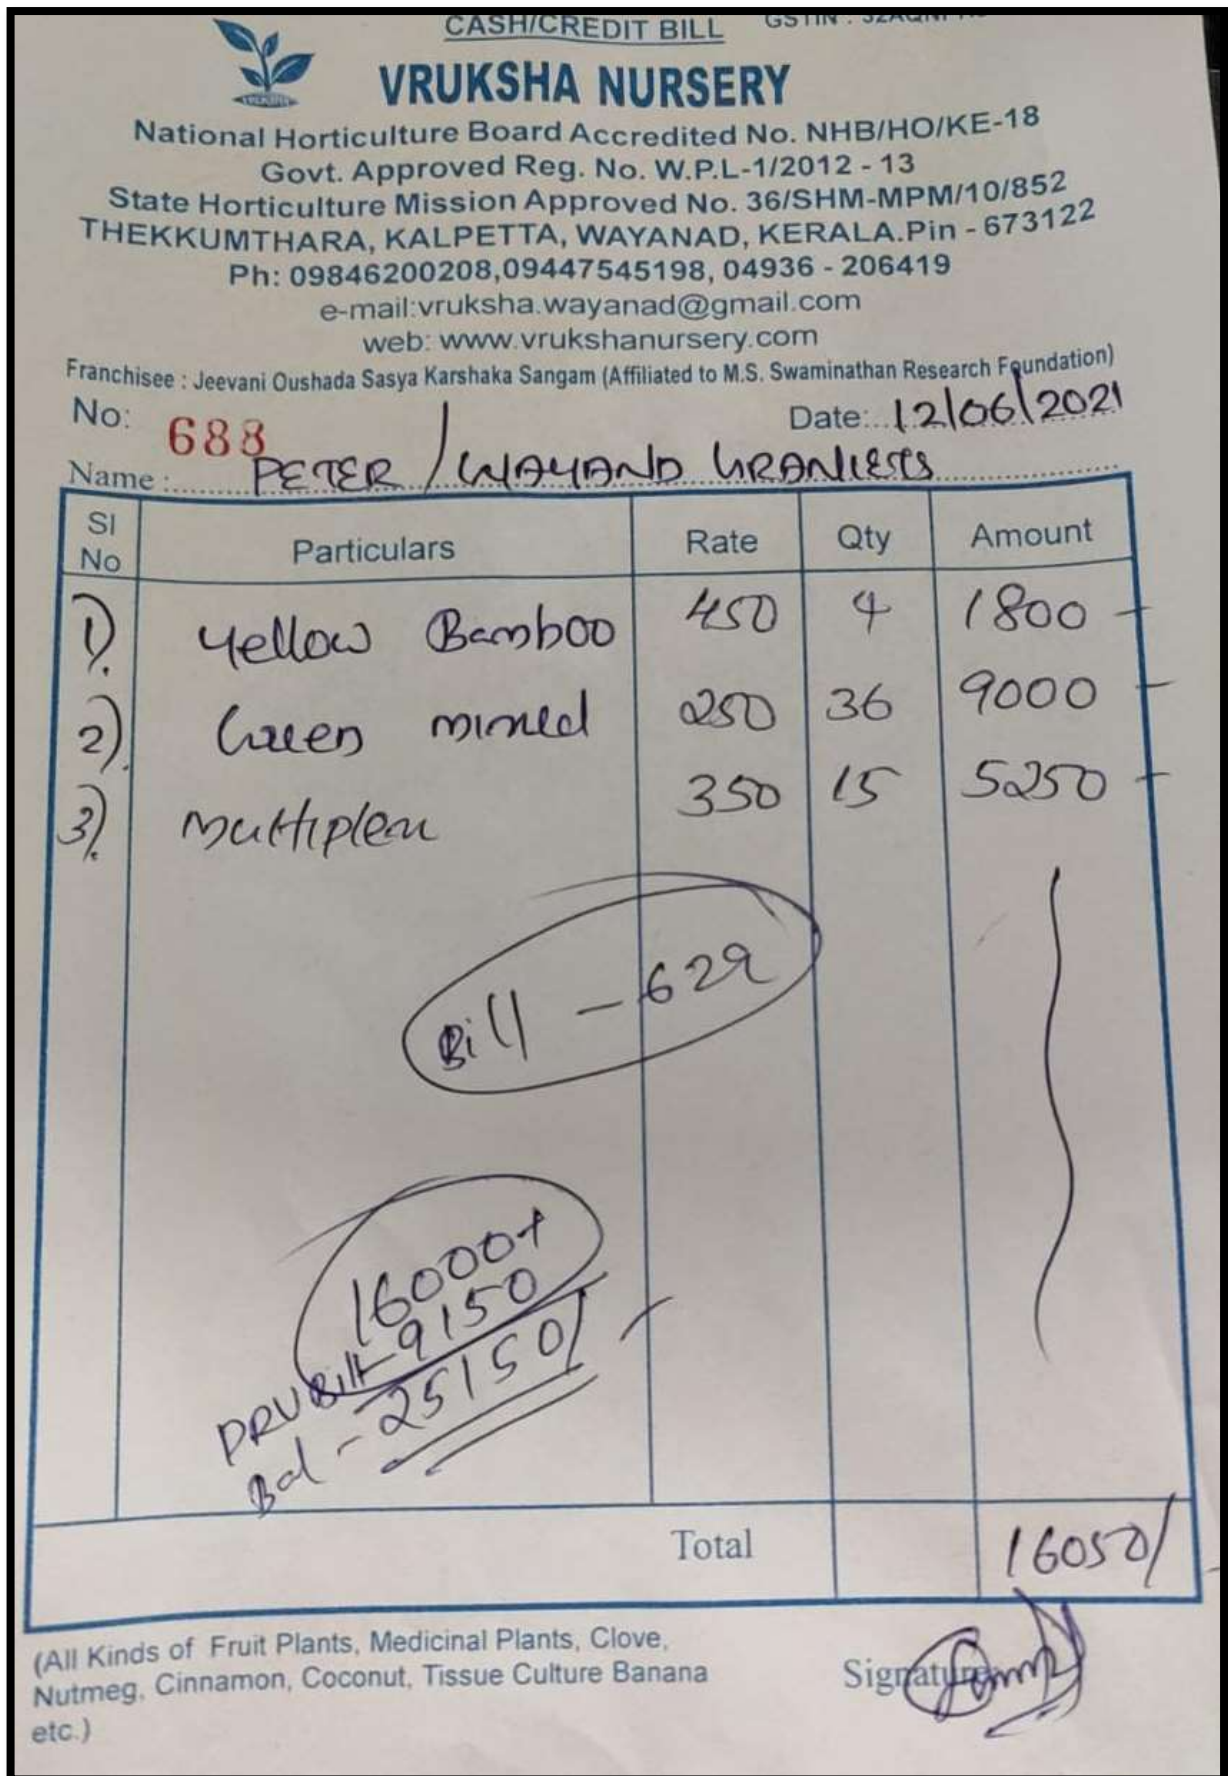 CASH/CREDIT BILL
VRUKSHA NURSERY
National Horticulture Board Accredited No. NHB/HO/KE-18
Govt. Approved Reg. No. W.P.L-1/2012 - 13
State Horticulture Mission Approved No. 36/SHM-MPM/10/852
THEKKUMTHARA, KALPETTA, WAYANAD, KERALA.Pin - 673122
Ph: 09846200208,09447545198, 04936 - 206419
e-mail:vruksha.wayanad@gmail.com
web: www.vrukshanursery.com
Franchisee : Jeevani Oushada Sasya Karshaka Sangam (Affiliated to M.S. Swaminathan Research Foundation)
No: 688 Date: 12/06/2021
Name : PETER / WAYAND
Sl No Particulars Rate Qty Amount
1). Yellow Bamboo 450 4 1800 -
2). Green 250 36 9000 -
3). 350 15 5250 -
Bill - 629
16000+
PRV Bill - 9150
Bal - 25150/-
Total 16050/-
(All Kinds of Fruit Plants, Medicinal Plants, Clove,
Nutmeg, Cinnamon, Coconut, Tissue Culture Banana
etc.)
Signature